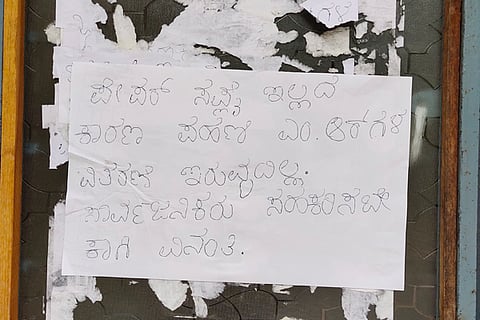 ಪೇಪರ್ ಸಪ್ಲೈ ಇಲ್ಲದ
ಕಾರಣ ಪಹಣಿ ಎಂ.ಆರ್‌ಗಳ
ವಿತರಣೆ ಇರುವುದಿಲ್ಲ.
ಸಾರ್ವಜನಿಕರು ಸಹಕರಿಸಬೇ
ಕಾಗಿ ವಿನಂತಿ.